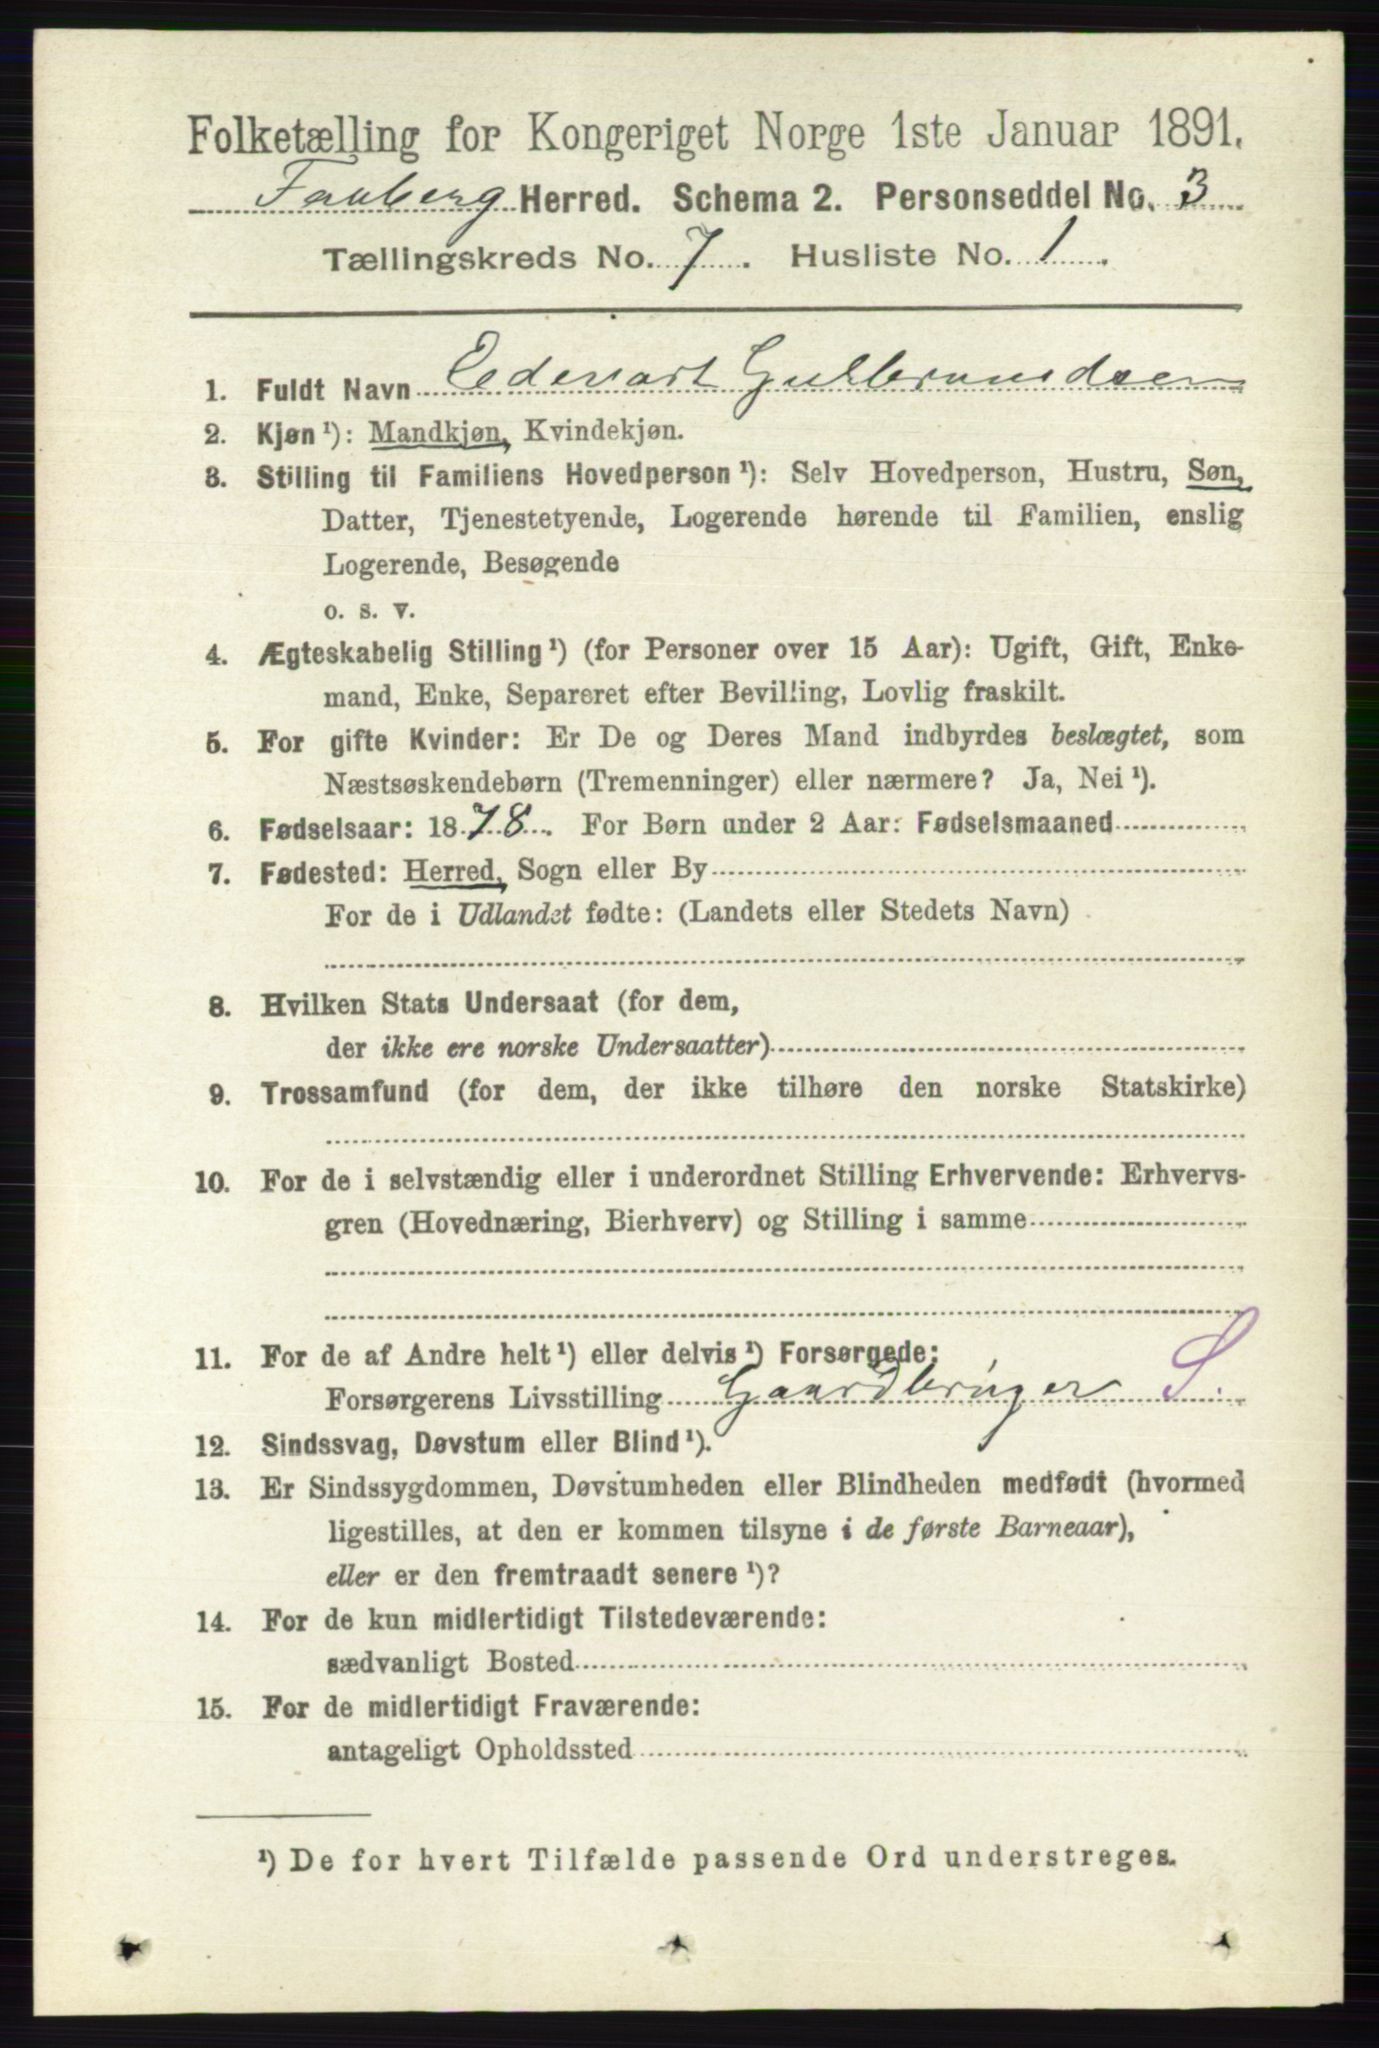 Folketælling for Kongeriget Norge 1ste Januar 1891.
Faaberg Herred. Schema 2. Personseddel No. 3
Tællingskreds No. 7. Husliste No. 1.
1. Fuldt Navn Edevart Gulbrandsen
2. Kjøn ¹): Mandkjøn, Kvindekjøn.
3. Stilling til Familiens Hovedperson ¹): Selv Hovedperson, Hustru, Søn,
Datter, Tjenestetyende, Logerende hørende til Familien, enslig
Logerende, Besøgende
o. s. v.
4. Ægteskabelig Stilling ¹) (for Personer over 15 Aar): Ugift, Gift, Enke-
mand, Enke, Separeret efter Bevilling, Lovlig fraskilt.
5. For gifte Kvinder: Er De og Deres Mand indbyrdes beslægtet, som
Næstsøskendebørn (Tremenninger) eller nærmere? Ja, Nei ¹).
6. Fødselsaar: 1878. For Børn under 2 Aar: Fødselsmaaned
7. Fødested: Herred, Sogn eller By
For de i Udlandet fødte: (Landets eller Stedets Navn)
8. Hvilken Stats Undersaat (for dem,
der ikke ere norske Undersaatter)
9. Trossamfund (for dem, der ikke tilhøre den norske Statskirke)
10. For de i selvstændig eller i underordnet Stilling Erhvervende: Erhvervs-
gren (Hovednæring, Bierhverv) og Stilling i samme
11. For de af Andre helt ¹) eller delvis ¹) Forsørgede:
Forsørgerens Livsstilling Gaardbruger S.
12. Sindssvag, Døvstum eller Blind ¹).
13. Er Sindssygdommen, Døvstumheden eller Blindheden medfødt (hvormed
ligestilles, at den er kommen tilsyne i de første Barneaar),
eller er den fremtraadt senere ¹)?
14. For de kun midlertidigt Tilstedeværende:
sædvanligt Bosted
15. For de midlertidigt Fraværende:
antageligt Opholdssted
¹) De for hvert Tilfælde passende Ord understreges.